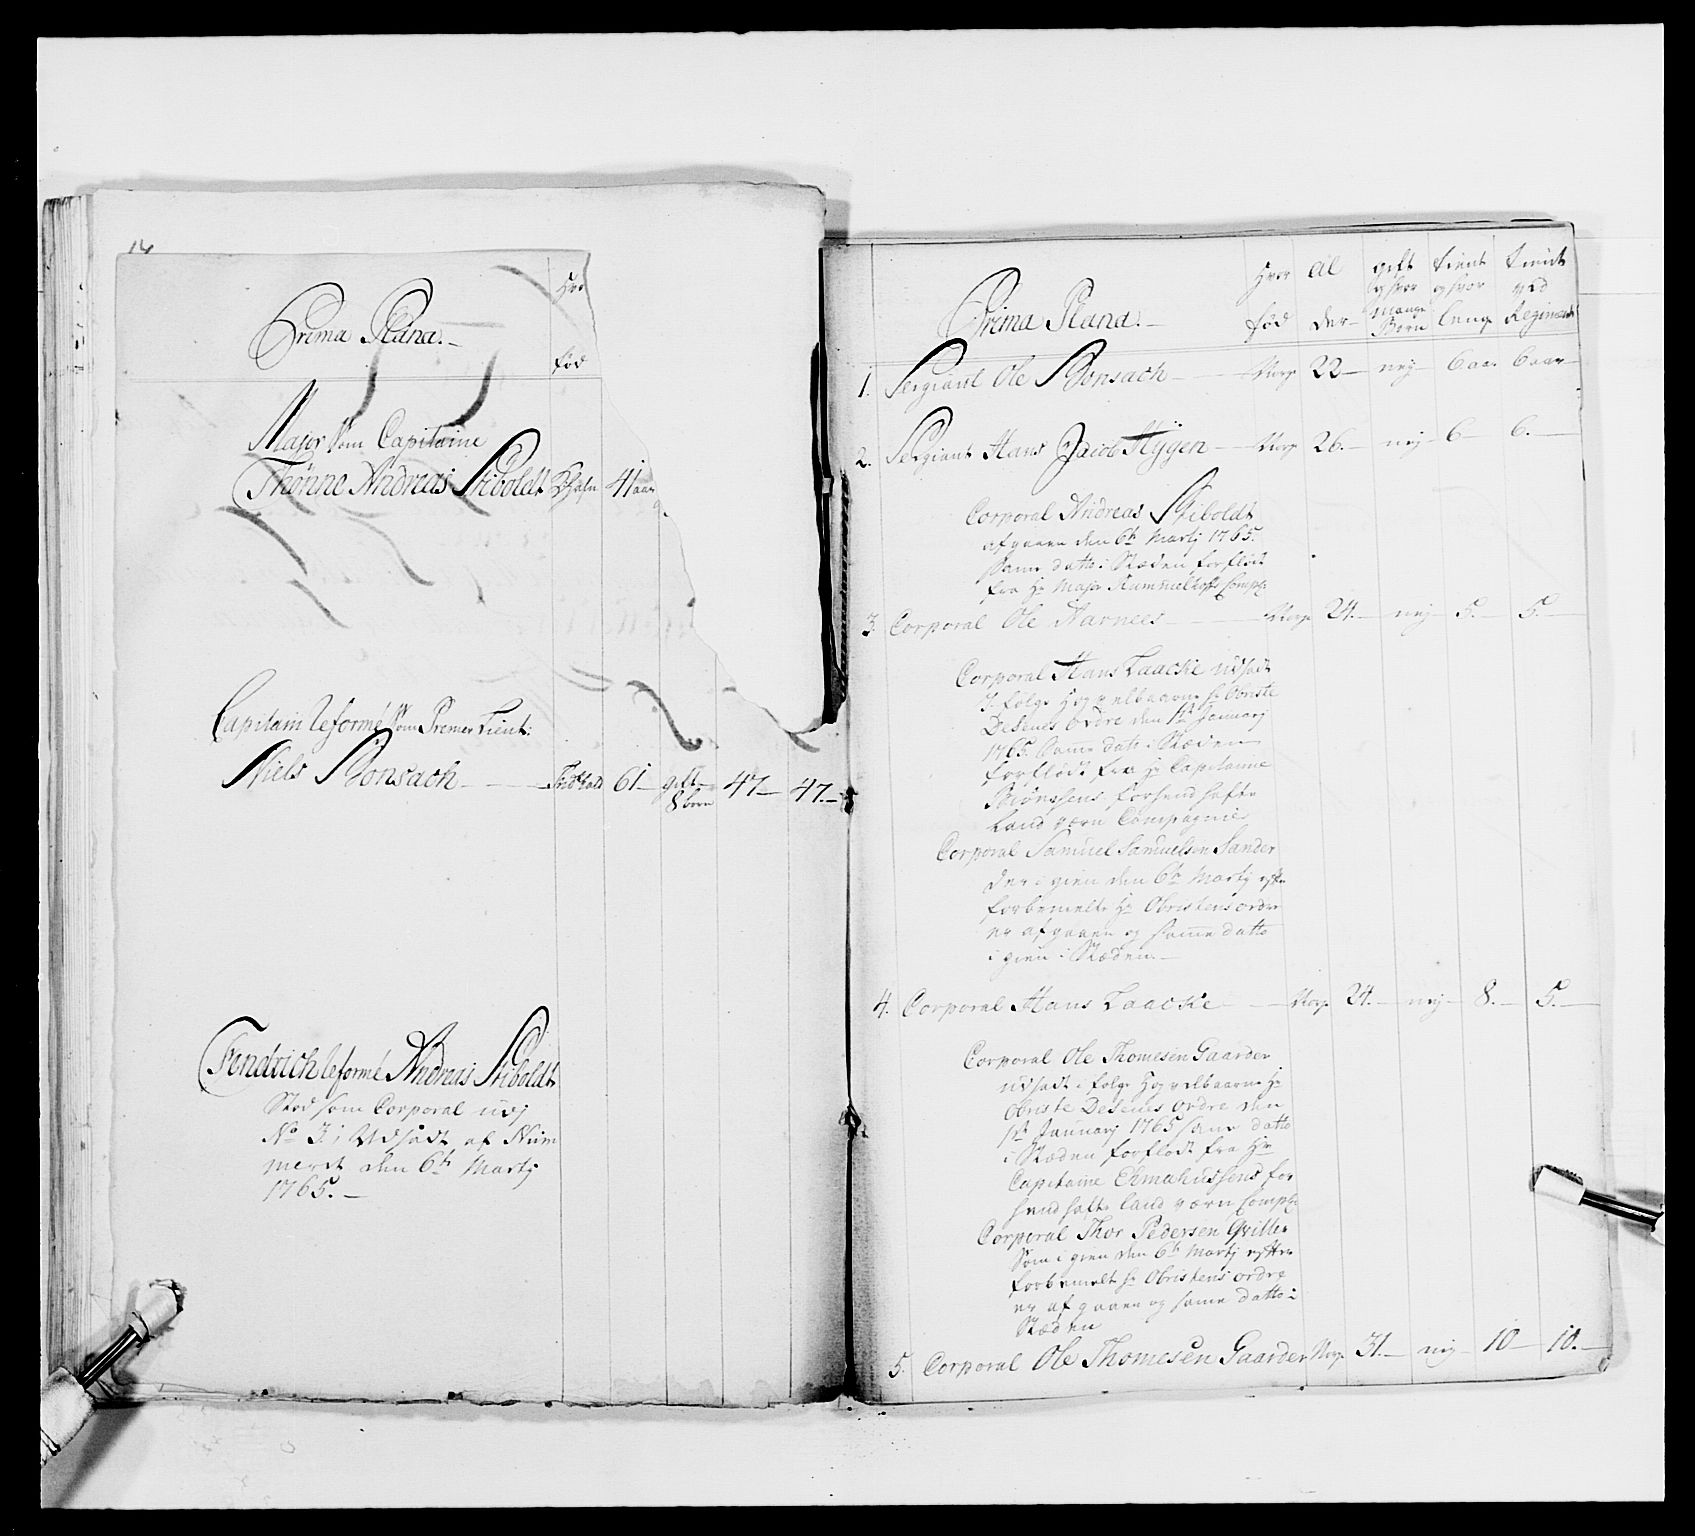 14
Prima Plana.
Hvor
fød
Major som Capitaine
Thønne Andreas Stiboldt Khafn 41 aar
Capitain Reformé som Premer Lieut:
Niels Bonsach 61 gift 8 børn 47 47.
Fendrich Reformé Andreas Stiboldt
Stod som Corporal udj
No 3 i Udsadt af Num
meret den 6te Martj
1765.
Prima Plana.
Hvor fød
Al der
gift og hvor mange Børn
tient og hvor leng
tient ved Regimentet
1. Sergiant Ole Bonsach Norge 22 nej 6 aar 6 aar
2. Sergiant Hans Jacob Hygen Norge 26. nej 6 6.
Corporal Andreas Stiboldt
afgaaen den 6te Martj 1765.
Same datto i Stæden forflødt
fra Hr Major Rummelhoffs Comp:
3. Corporal Ole Narnees Norge 24. nej 5. 5.
Corporal Hans Laacke udsadt
I følge Høyvelbaarne Hr Obriste
DeSenes ordre den 1te Januarj
1765. Same dato i Stæden
forflødt fra Hr Capitaine
Biønssens forhend hafte
Land værn Compagnie
Corporal Samuel Samuelsen Sander
der i gien den 6te Martj efter
forbemelte Hr Obristens ordre
er afgaaen og same datto
i gien i Stæden.
4. Corporal Hans Laacke Norge 24. nej 8. 5.
Corporal Ole Thomesen Gaarder
udsadt i følge Høyvelbaarne Hr
Obriste DeSenes ordre den
1te Januarj 1765 same datto
i Stæden forflødt fra Hr
Capitaine Ehmahussens for
hend hafte land værn Comp:
Corporal Thor Pedersen Qville
som i gien den 6te Martj efter
forbemelt Hr Obristens ordre
er af gaaen og same datto i
Stæden
5. Corporal Ole Thomesen Gaarder Norge 31. nej 10 10.